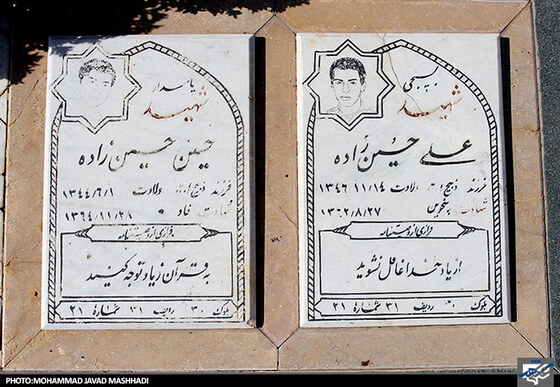 بسیجی
شهید
علی حسن زاده
فرزند ذبیح اله ولادت ۱۳۴۶/۱۱/۱۴
شهادت پنجوین ۱۳۶۲/۸/۲۷
فرازی از وصیتنامه
از یاد خدا غافل نشوید
بلوک ۳۰ ردیف ۳۱ شماره ۲۱
پاسدار
شهید
حسین حسین زاده
فرزند ذبیح اله ولادت ۱۳۴۴/۶/۱
شهادت فاو ۱۳۶۴/۱۱/۲۸
فرازی از وصیتنامه
به قرآن زیاد توجه کنید
بلوک ۳۰ ردیف ۳۱ شماره ۲۱
PHOTO:MOHAMMAD JAVAD MASHHADI